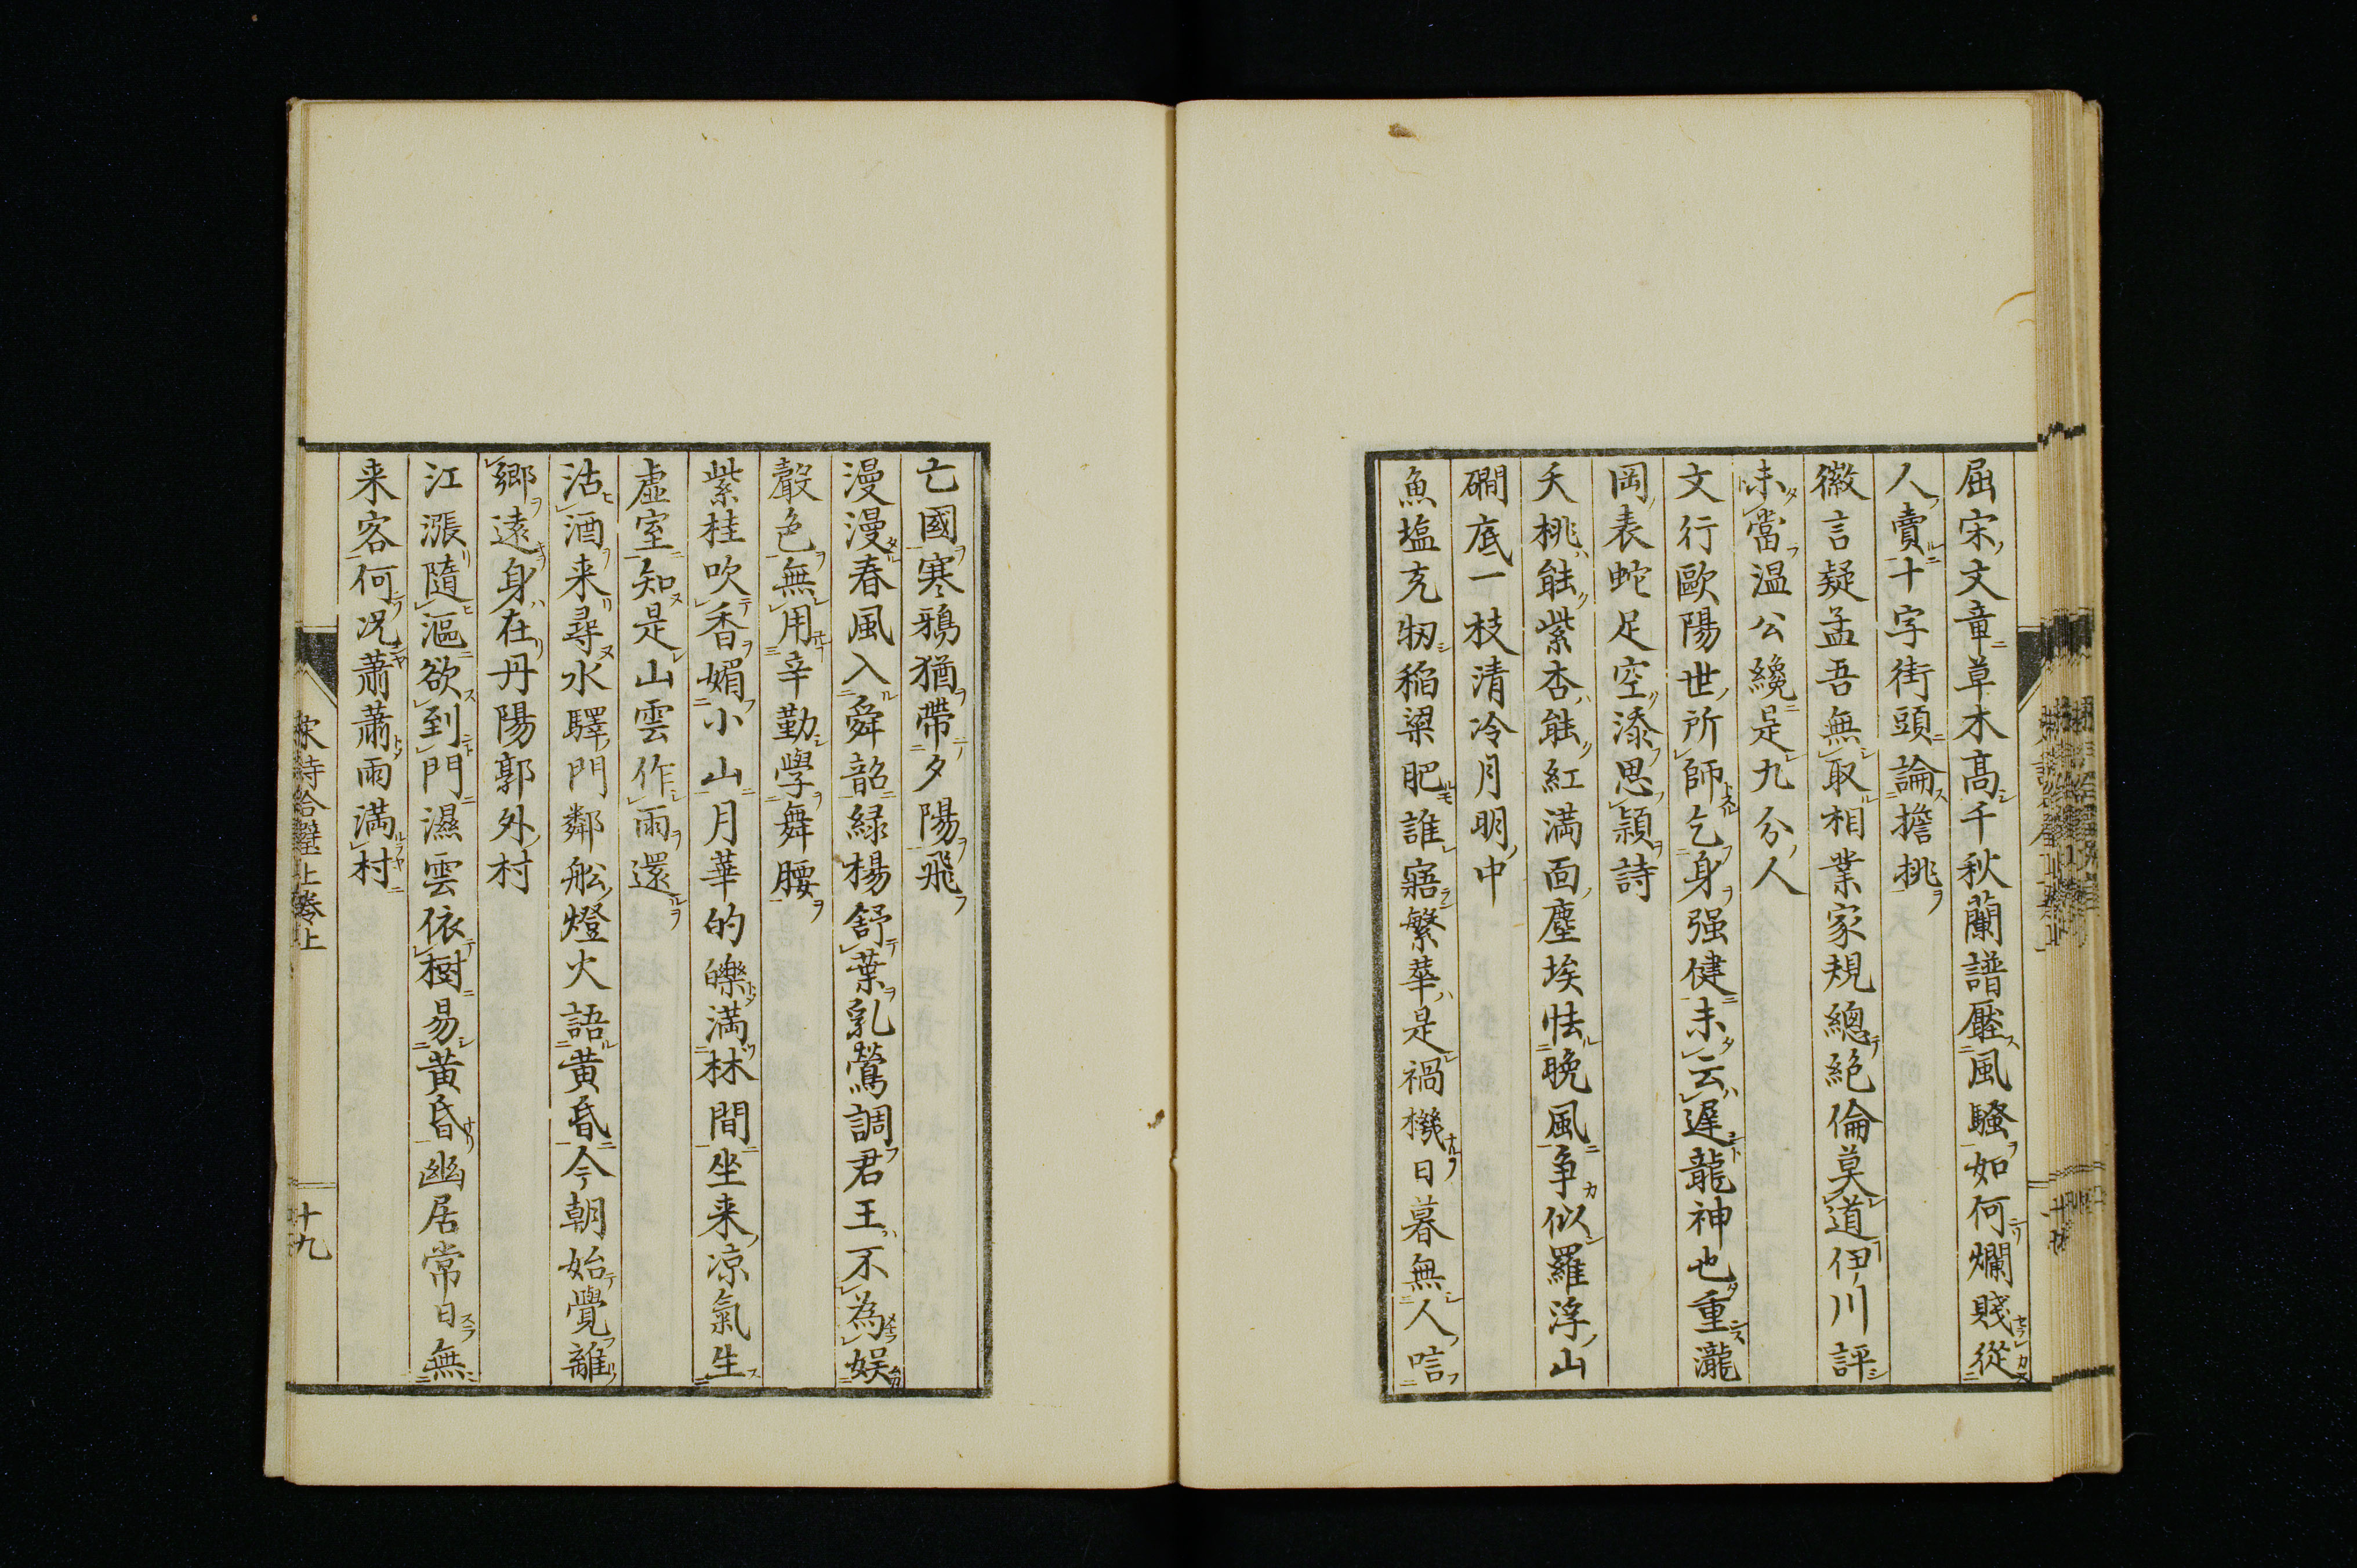 屈宋文章草木高千秋蘭譜壓風騷如何爛賤從
人賣十字街頭論擔挑
徽言疑孟吾無取相業家規總絶倫莫道伊川評
未當温公纔是九分人
文行歐陽世所師乞身强健未云遲龍神也重瀧
岡表蛇足空添思潁詩
夭桃能紫杏能紅満面塵埃怯晩風争似羅浮山
磵底一枝清冷月明中
魚塩充牣稲粱肥誰寤繁華是禍機日暮無人唁
亡國寒鴉猶帶夕陽飛
漫漫春風入舜韶緑楊舒葉乳鶯調君王不為娯
聲色無用辛勤學舞腰
紫桂吹香媚小山月華的皪満林間坐来凉氣生
虚室知是山雲作雨還
沽酒来尋水驛門鄰舩燈火語黄昏今朝始覺離
鄉遠身在丹陽郭外村
江漲隨漚欲到門濕雲依樹易黄昏幽居常日無
来客何况蕭蕭雨満村
宋詩合璧上巻上
十九